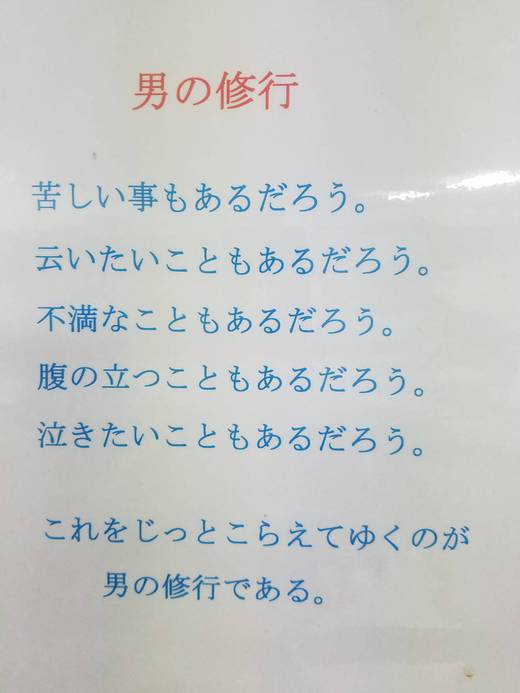 男の修行
苦しい事もあるだろう。
云いたいこともあるだろう。
不満なこともあるだろう。
腹の立つこともあるだろう。
泣きたいこともあるだろう。
これをじっとこらえてゆくのが
男の修行である。